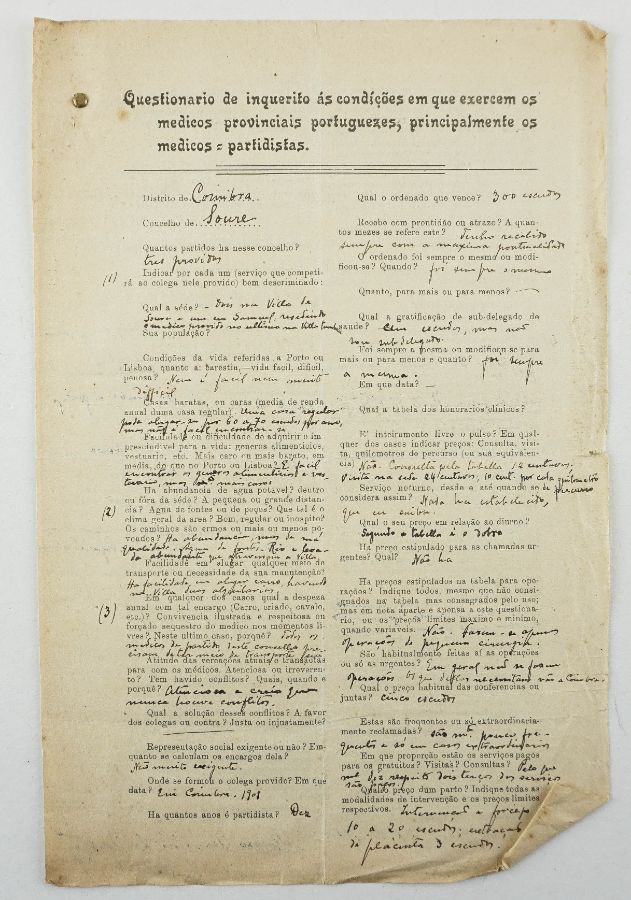 Questionario de inquerito ás condições em que exercem os
medicos provinciais portuguezes, principalmente os
medicos = partidistas.
Distrito de Coimbra
Concelho de Soure
Quantos partidos ha nesse concelho?
tres providos
(1) Indicar por cada um (serviço que competi-
rá ao colega nele provido) bem descriminado:
Qual a séde? - Dois na Villa de
Soure e um em Samuel, residindo
o medico provido no ultimo na Villa
Sua população?
Condições da vida referidas a Porto ou
Lisboa, quanto a: barestia,—vida facil, dificil,
penosa? Nem é facil nem muito
difficil
Casas baratas, ou caras (media de renda
anual duma casa regular) Uma casa regular
pode alugar-se por 60 a 70 escudos por ano,
mas não é facil encontrar-se
Faculdade ou dificuldade de adquirir o im-
prescindivel para a vida: generos alimenticios,
vestuario, etc. Mais caro ou mais barato, em
media, do que no Porto ou Lisboa? É facil
encontrar os generos alimenticios e ves-
tuario, mas são mais caros
Ha abundancia de agua potavel? dentro
ou fóra da séde? A pequena ou grande distan-
(2) cia? Agua de fontes ou de poços? Que tal é o
clima geral da area? Bom, regular ou inospito?
Os caminhos são ermos ou mais ou menos po-
voados? Ha abundancia, mas de má
qualidade. Agua de fontes.
Facilidade em alugar qualquer meio de
transporte ou necessidade da sua manutenção?
Ha facilidade em alugar carro, havendo
na Villa duas alquilarias.
Em qualquer dos casos qual a despeza
(3) anual com tal encargo (Carro, criado, cavalo,
etc.)? Convivencia ilustrada e respeitosa ou
forçado sequestro do medico nos momentos li-
vres? Neste ultimo caso, porquê? Todos os
medicos de partido deste concelho pre-
cisam de ter meio de transporte seu
Atitude das vereações atuais e transactas
para com os medicos. Atenciosa ou irreveren-
te? Tem havido conflitos? Quais, quando e
porquê? Atenciosa e creio que
nunca houve conflitos.
Qual a solução desses conflitos? A favor
dos colegas ou contra? Justa ou injustamente?
Representação social exigente ou não? Em
quanto se calculam os encargos dela?
Não muito exigente
Onde se formou o colega provido? Em que
data? Em Coimbra. 1901
Ha quantos anos é partidista? Dez
Qual o ordenado que vence? 300 escudos
Recebe com prontidão ou atrazo? A quan-
tos mezes se refere este? Tenho recebido
sempre com a maxima pontualidade
O ordenado foi sempre o mesmo ou modi-
ficou-se? Quando? foi sempre o mesmo
Quanto, para mais ou para menos? —
Qual a gratificação de sub-delegado de
saude? Cem escudos, mas não
sou subdelegado.
Foi sempre a mesma ou modificou-se para
mais ou para menos e quanto? foi sempre
a mesma.
Em que data? —
Qual a tabela dos honorarios clinicos?
E' inteiramente livre o pulso? Em qual-
quer dos casos indicar preços: Consulta, visi-
ta, quilometros de percurso (ou sua equivalen-
cia) Não. Consulta pela tabella 12 centavos.
Visita na sede 24 centavos; 10 cent. por cada quilometro
percurso
Serviço noturno, desde e até quando se de
considera assim? Nada ha estabelecido,
que eu saiba.
Qual o seu preço em relação ao diurno?
Segundo a tabella é o dobro
Ha preço estipulado para as chamadas ur-
gentes? Qual? Não ha
Ha preços estipulados na tabela para ope-
rações? Indique todos, mesmo que não consi-
gnados na tabela mas consagrados pelo uso;
mas em nota aparte e apensa a este questiona-
rio, ou os preços limites maximo e minimo,
quando variaveis. Não. Fazem-se apenas
operações de pequena cirurgia.
São habitualmente feitas aí as operações
ou só as urgentes? Em geral não se fazem
operações (os que dellas necessitam vão a Coimbra.
Qual o preço habitual das conferencias ou
juntas? Cinco escudos
Estas são frequentes ou só extraordinaria-
mente reclamadas? São mt. pouco fre-
quentes e só em casos extraordinarios
Em que proporção estão os serviços pagos
para os gratuitos? Visitas? Consultas? Pelo que
me diz respeito dois terços dos serviços
são pagos.
Qual o preço dum parto? Indique todas as
modalidades de intervenção e os preços limites
respectivos. Intervenção a forceps
10 a 20 escudos; extração
da placenta 3 escudos.